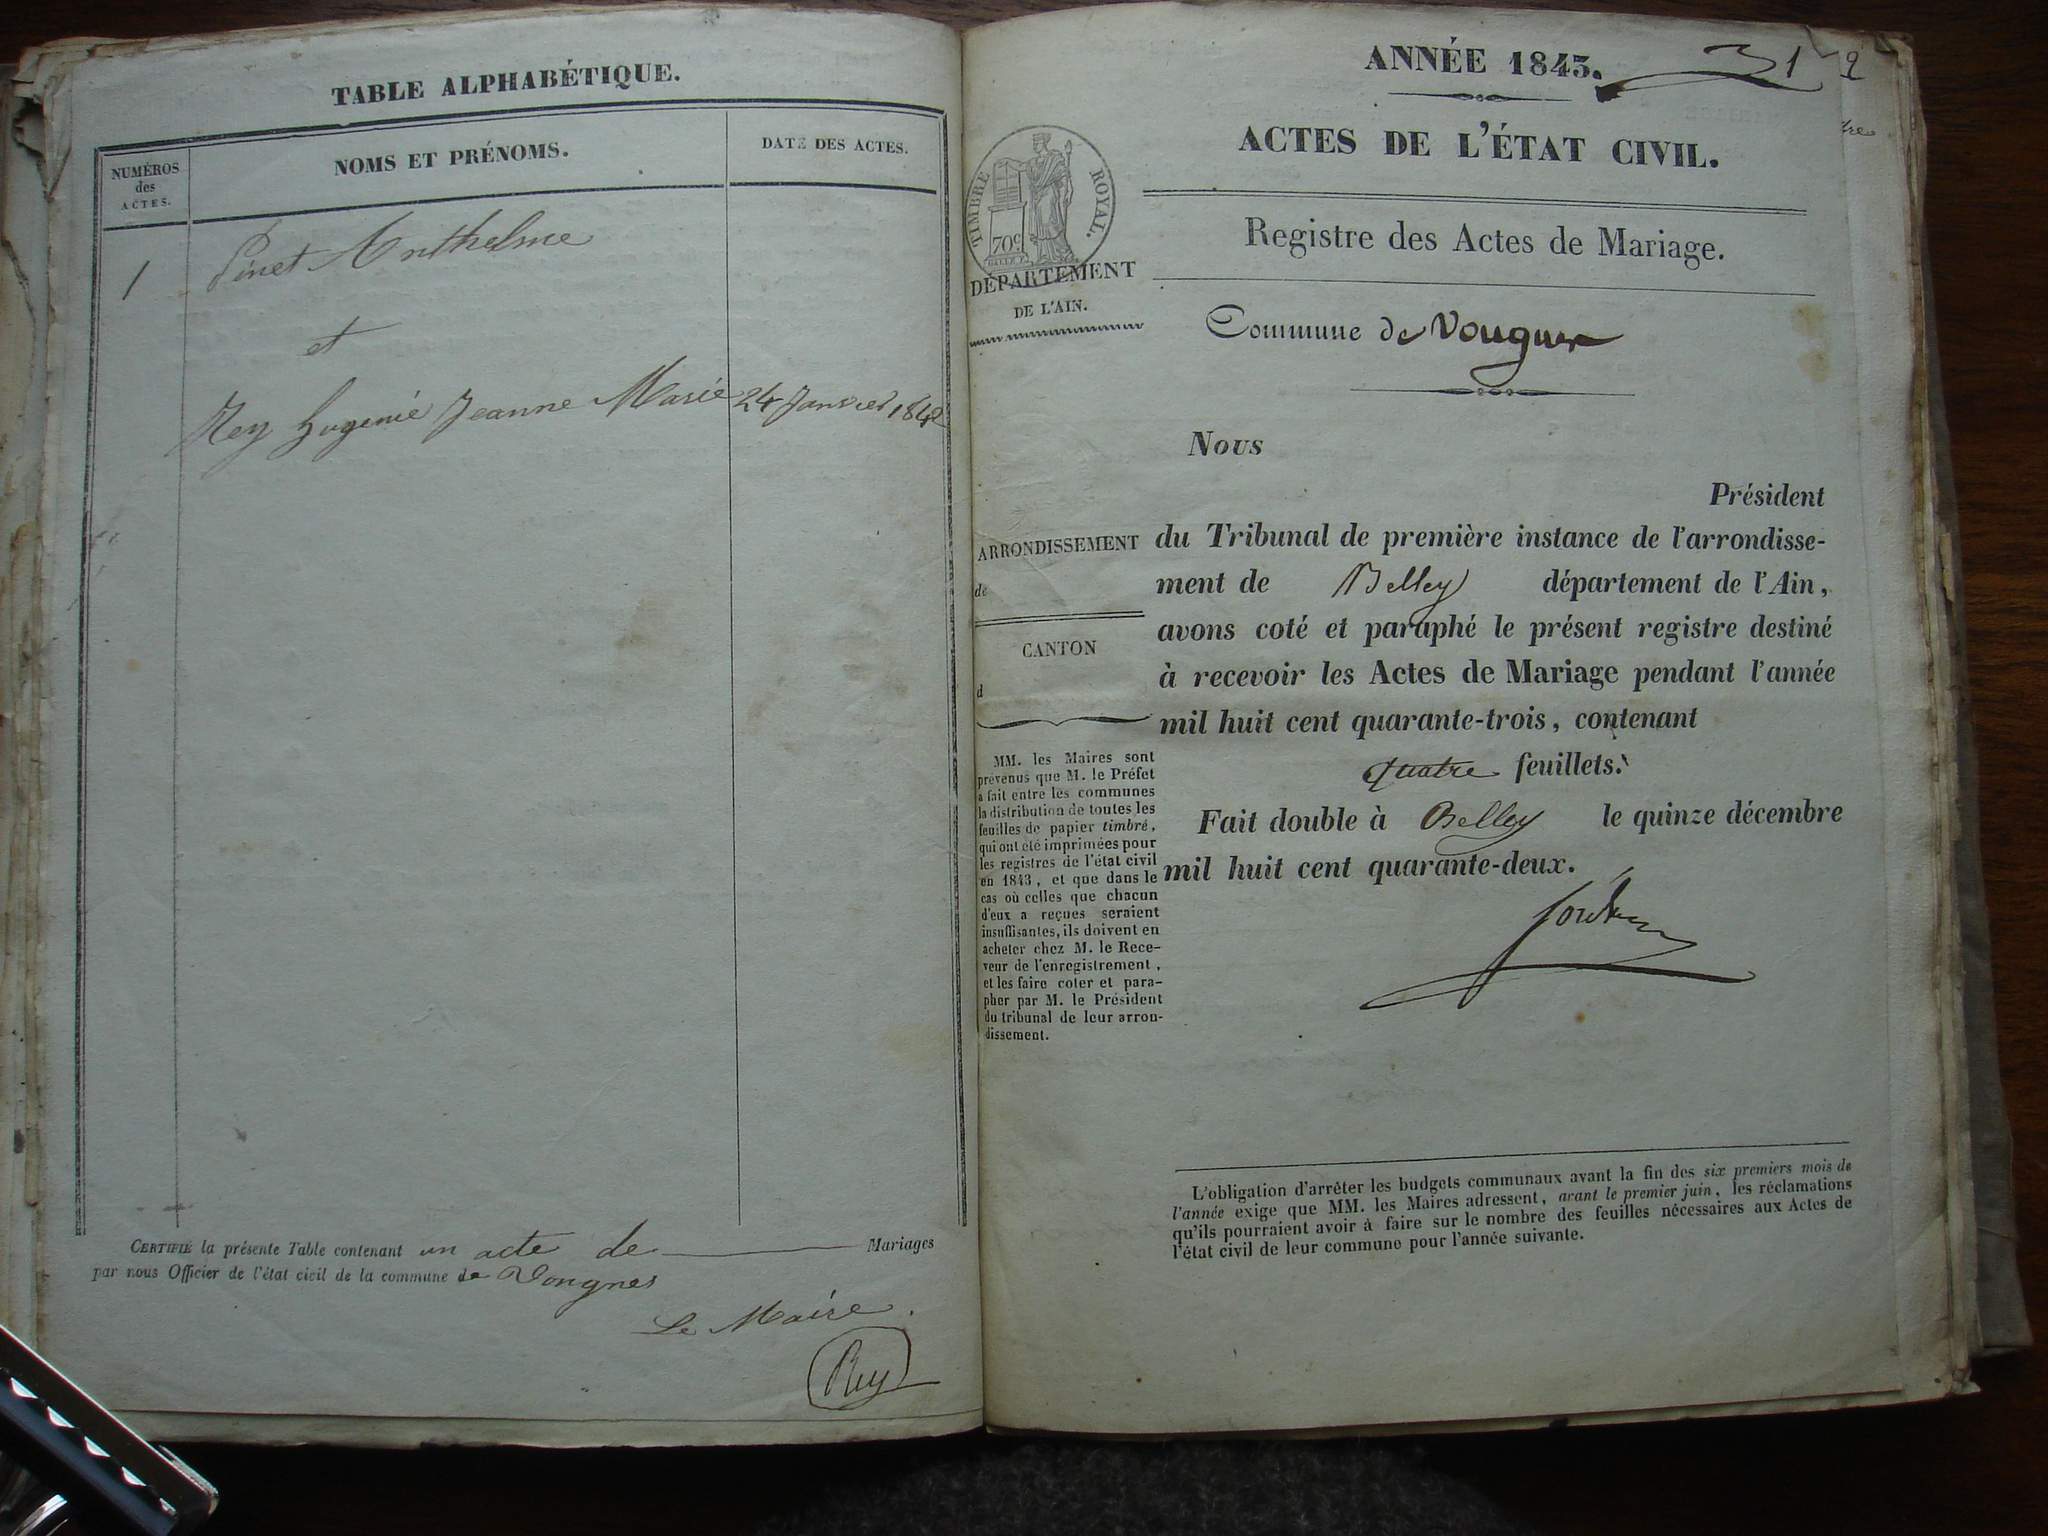 TABLE ALPHABÉTIQUE.
NUMÉROS
des
ACTES.
NOMS ET PRÉNOMS.
DATE DES ACTES.
1
Pinet Anthelme
et
Rey Eugenie Jeanne Marie 24 Janvier 1842
CERTIFIÉ la présente Table contenant un acte de Mariages
par nous Officier de l'état civil de la commune de Vongnes
Le Maire.
Rey
ANNÉE 1843.
31
ACTES DE L'ÉTAT CIVIL.
Registre des Actes de Mariage.
TIMBRE ROYAL.
70c
DÉPARTEMENT
DE L'AIN.
Commune de Vougnes
Nous
Président
du Tribunal de première instance de l'arrondisse-
ment de Belley département de l'Ain,
avons coté et paraphé le présent registre destiné
à recevoir les Actes de Mariage pendant l'année
mil huit cent quarante-trois, contenant
quatre feuillets.
Fait double à Belley le quinze décembre
mil huit cent quarante-deux.
ARRONDISSEMENT
de
CANTON
d
MM. les Maires sont
prévenus que M. le Préfet
a fait entre les communes
la distribution de toutes les
feuilles de papier timbré,
qui ont été imprimées pour
les registres de l'état civil
en 1843, et que dans le
cas où celles que chacun
d'eux a reçues seraient
insuffisantes, ils doivent en
acheter chez M. le Rece-
veur de l'enregistrement,
et les faire coter et para-
pher par M. le Président
du tribunal de leur arron-
dissement.
L'obligation d'arrêter les budgets communaux avant la fin des six premiers mois de
l'année exige que MM. les Maires adressent, avant le premier juin, les réclamations
qu'ils pourraient avoir à faire sur le nombre des feuilles nécessaires aux Actes de
l'état civil de leur commune pour l'année suivante.